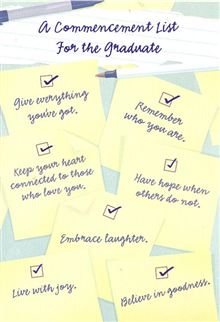 A Commencement List
For the Graduate
Give everything
you've got.
Remember
who you are.
Keep your heart
connected to those
who love you.
Have hope when
others do not.
Embrace laughter.
Live with joy.
Believe in goodness.